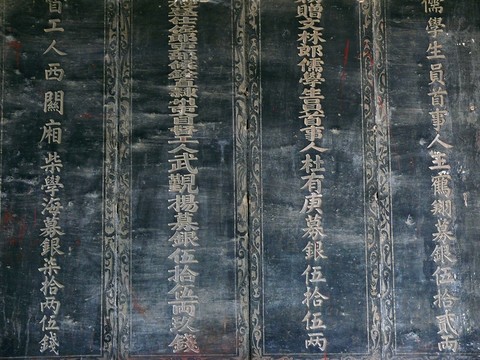 儒學生員首事人王鶴翔募銀伍拾貳兩
贈文林郎儒學生員首事人杜有庚募銀伍拾伍兩
首人武觀揚募銀伍拾伍兩玖錢
首工人西關廂柴學海募銀柒拾兩伍錢